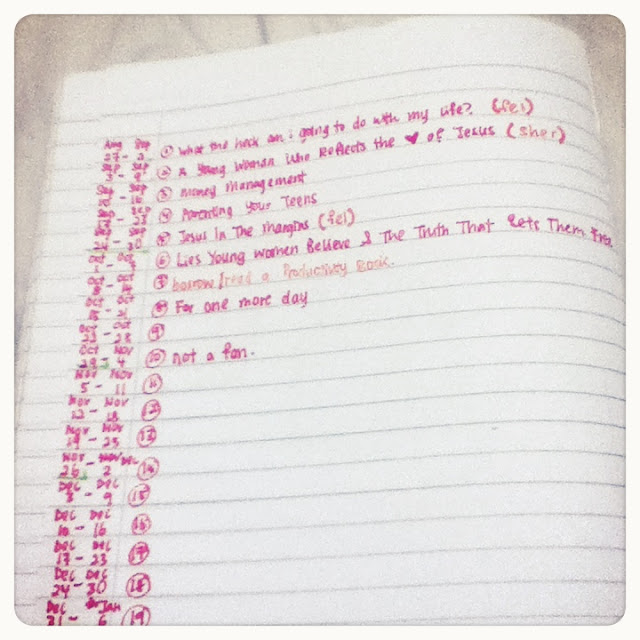 Aug Sep
27 - 2 ① What the heck am i going to do with my life? (fei)
Sep Sep
3 - 9 ② A Young Woman Who Reflects the ♥ of Jesus (sher)
Sep Sep
10 - 16 ③ money management
Sep Sep
17 - 23 ④ Parenting Your Teens
Sep
24 - 30 ⑤ Jesus In The Margins (fei)
Oct - Oct
⑥ Lies Young Women Believe & The Truth That Sets Them Free
Oct Oct
⑦ borrow/read a Productivity Book.
Oct Oct
15 - 21 ⑧ For one more day
Oct - Oct
22 - 28 ⑨
Oct Nov
29 - 4 ⑩ not a fan.
Nov Nov
5 - 11 ⑪
Nov Nov
12 - 18 ⑫
Nov Nov
19 - 25 ⑬
Nov - Dec
26 2 ⑭
Dec Dec
3 - 9 ⑮
Dec Dec
10 - 16 ⑯
Dec Dec
17 - 23 ⑰
Dec Dec
24 - 30 ⑱
Dec Jan
31 - 6 ⑲